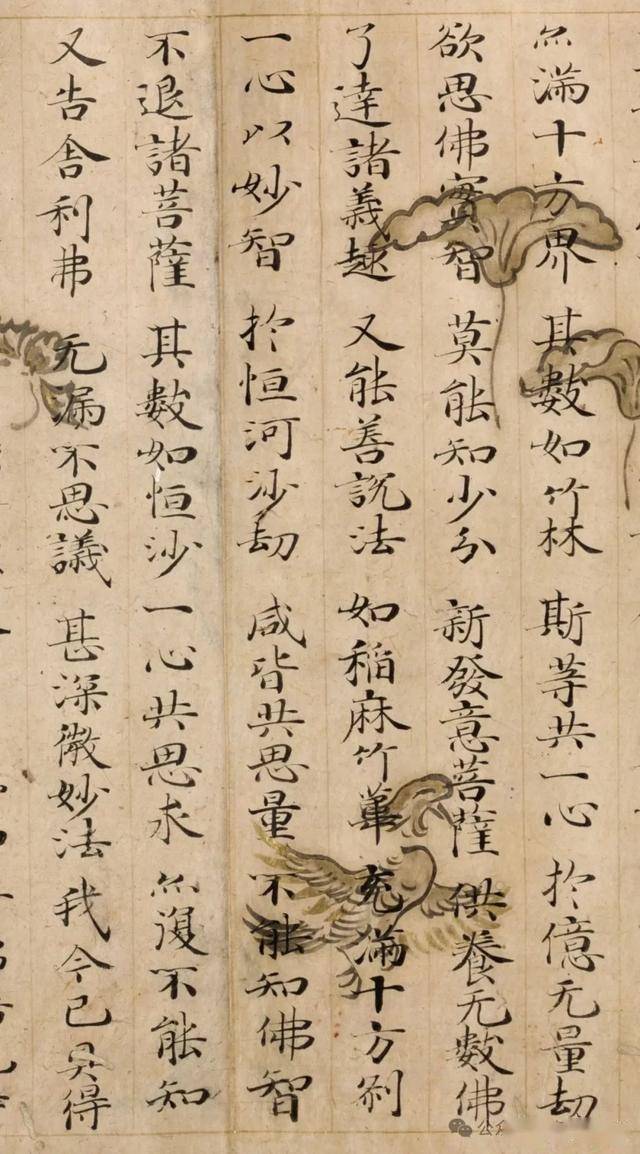 亦滿十方界 其數如竹林 斯等共一心 於億无量劫
欲思佛實智 莫能知少分 新發意菩薩 供養无數佛
了達諸義趣 又能善說法 如稻麻竹葦 充滿十方剎
一心以妙智 於恒河沙劫 咸皆共思量 不能知佛智
不退諸菩薩 其數如恒沙 一心共思求 亦復不能知
又告舍利弗 无漏不思議 甚深微妙法 我今已具得